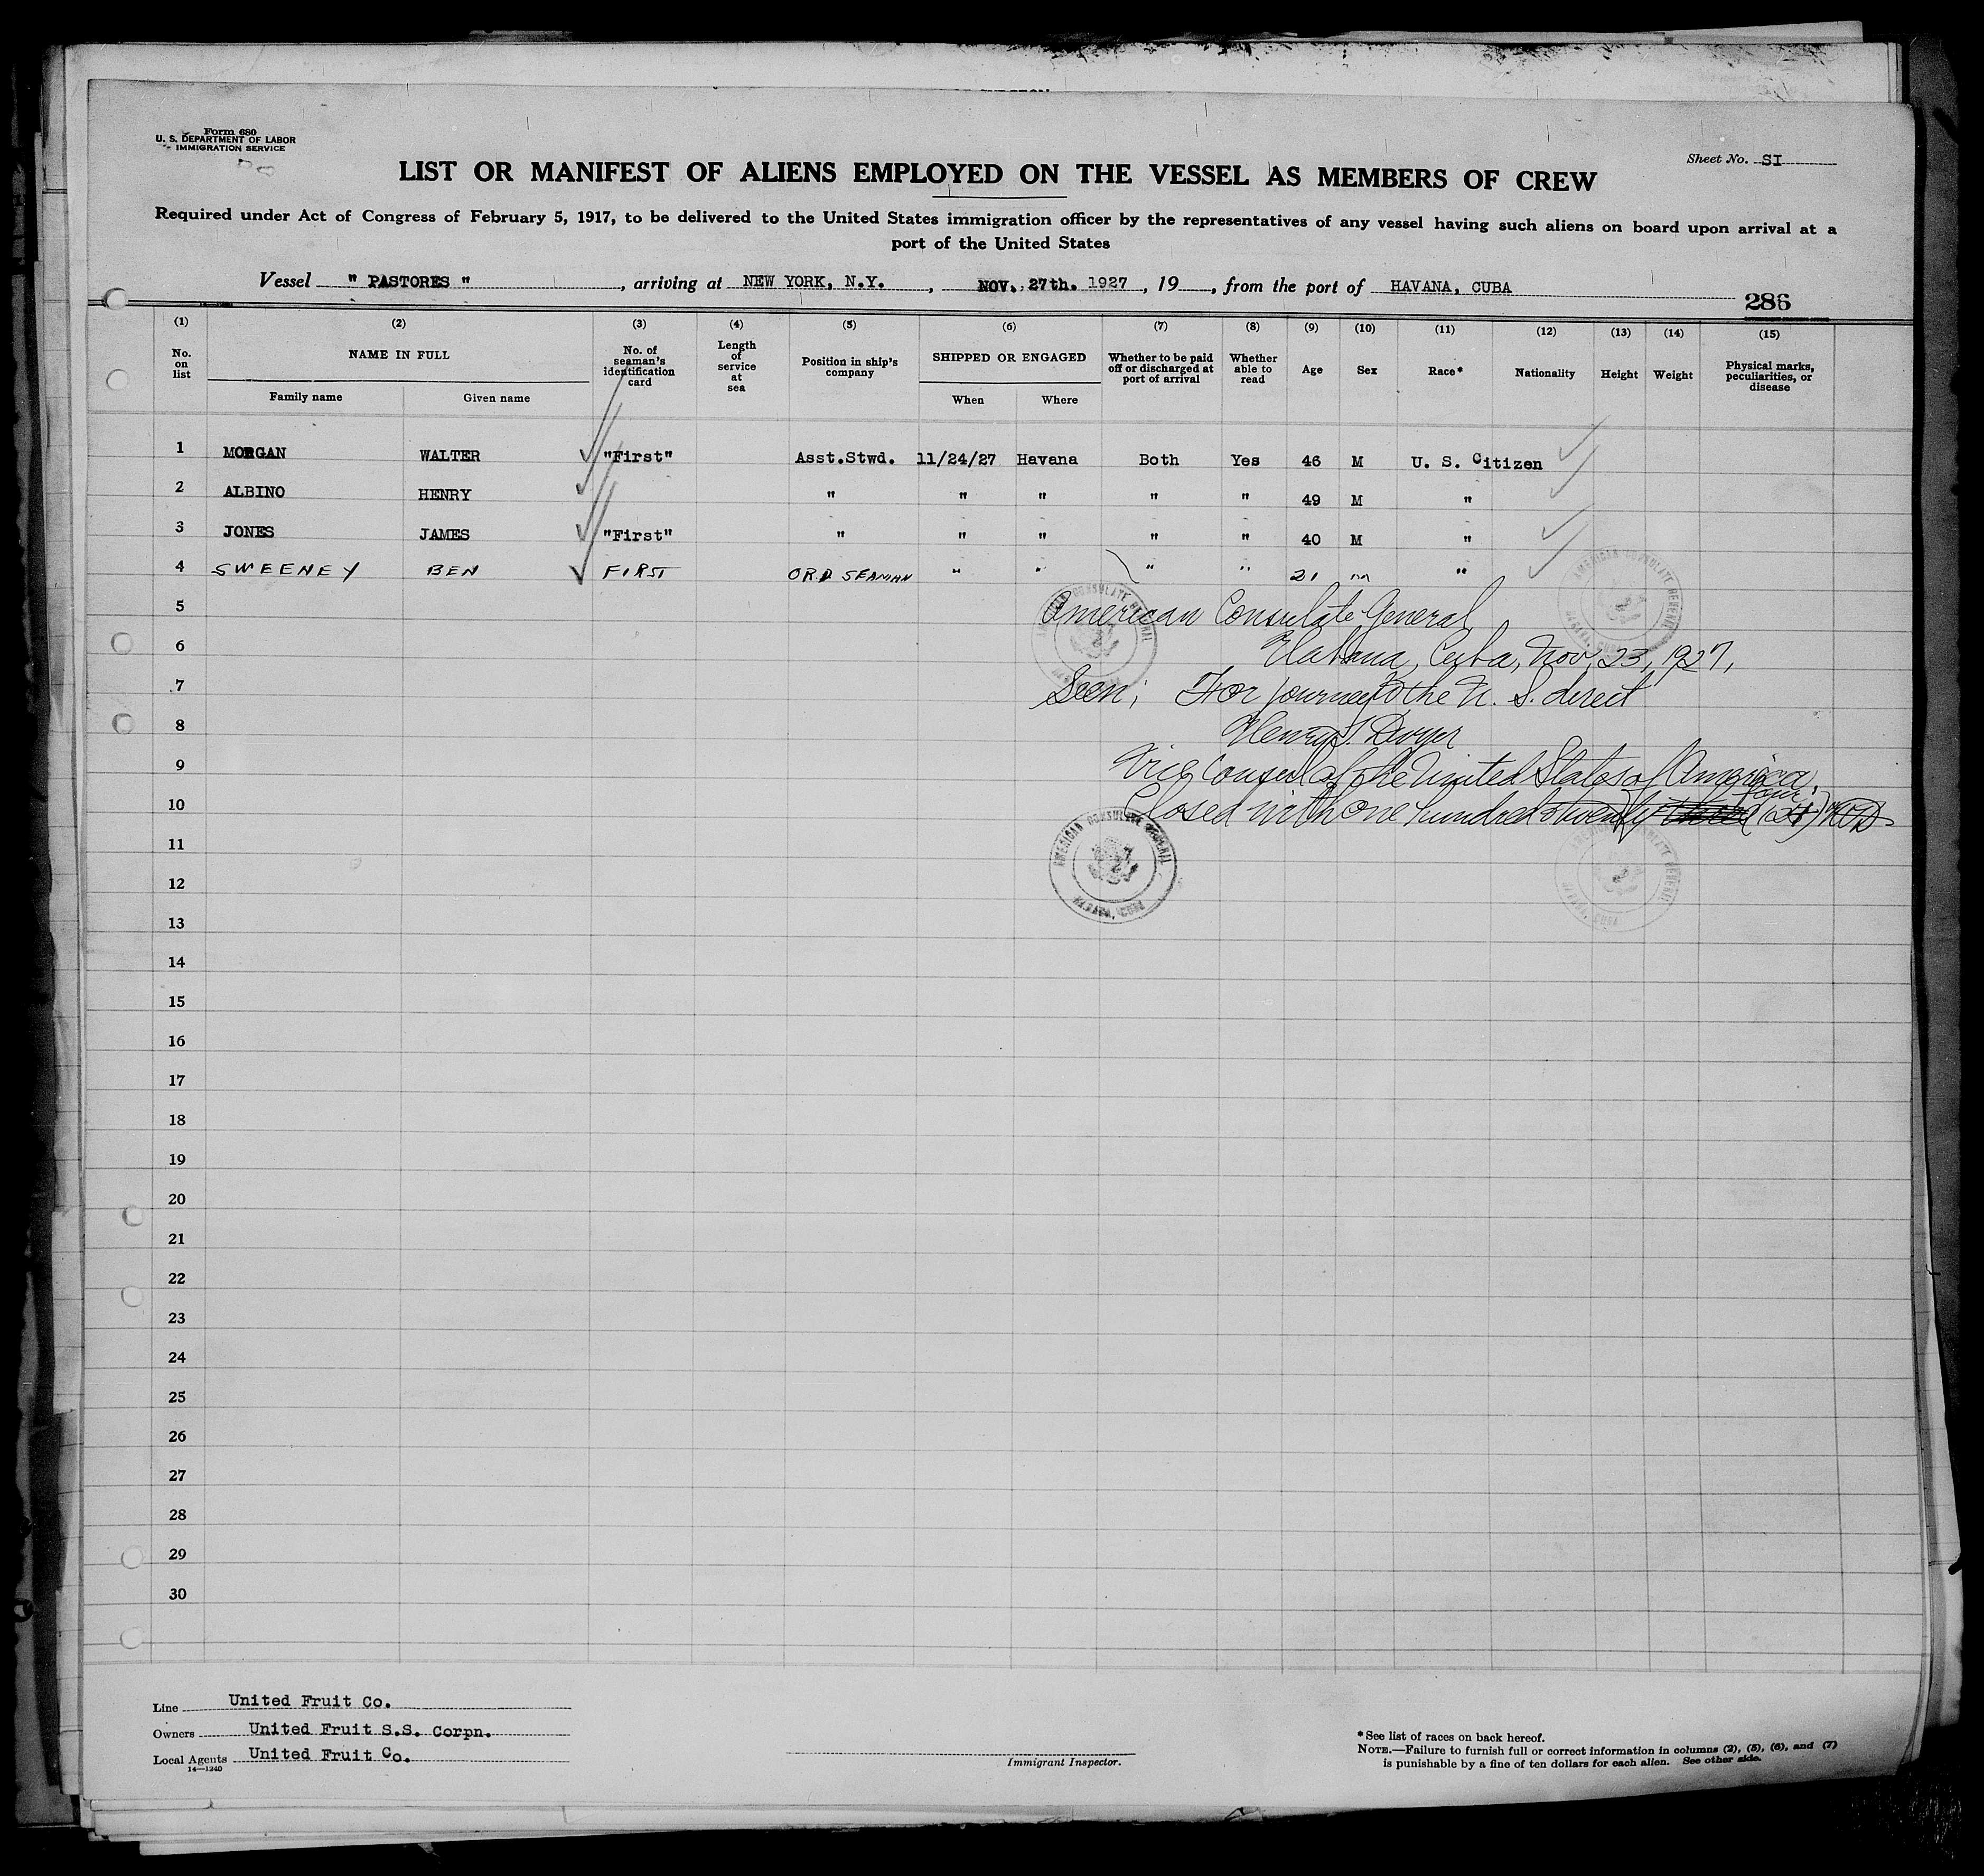 Form 680
U. S. DEPARTMENT OF LABOR
IMMIGRATION SERVICE
Sheet No. SI
LIST OR MANIFEST OF ALIENS EMPLOYED ON THE VESSEL AS MEMBERS OF CREW
Required under Act of Congress of February 5, 1917, to be delivered to the United States immigration officer by the representatives of any vessel having such aliens on board upon arrival at a
port of the United States
Vessel " PASTORES " , arriving at NEW YORK, N.Y. , NOV. 27th. 1927 , 19 , from the port of HAVANA, CUBA
286
(1) (2) (3) (4) (5) (6) (7) (8) (9) (10) (11) (12) (13) (14) (15)
No. on list NAME IN FULL No. of seaman's identification card Length of service at sea Position in ship's company SHIPPED OR ENGAGED Whether to be paid off or discharged at port of arrival Whether able to read Age Sex Race* Nationality Height Weight Physical marks, peculiarities, or disease
Family name Given name When Where
1 MORGAN WALTER "First" Asst.Stwd. 11/24/27 Havana Both Yes 46 M U. S. Citizen
2 ALBINO HENRY " " " " " 49 M "
3 JONES JAMES "First" " " " " " 40 M "
4 SWEENEY BEN FIRST ORD SEAMAN " " " " 21 m "
5 American Consulate General
6 Habana, Cuba, Nov. 23, 1927,
7 Seen; For journey to the U. S. direct
8 Henry S. Dwyer
9 Vice Consul of the United States of America.
10 Closed with one hundred twenty four
11
12
13
14
15
16
17
18
19
20
21
22
23
24
25
26
27
28
29
30
AMERICAN CONSULATE GENERAL
HABANA, CUBA
AMERICAN CONSULATE GENERAL
HABANA, CUBA
AMERICAN CONSULATE GENERAL
HABANA, CUBA
AMERICAN CONSULATE GENERAL
HABANA, CUBA
Line United Fruit Co.
Owners United Fruit S.S. Corpn.
Local Agents United Fruit Co.
14—1240
Immigrant Inspector.
*See list of races on back hereof.
NOTE.—Failure to furnish full or correct information in columns (2), (5), (6), and (7)
is punishable by a fine of ten dollars for each alien. See other side.